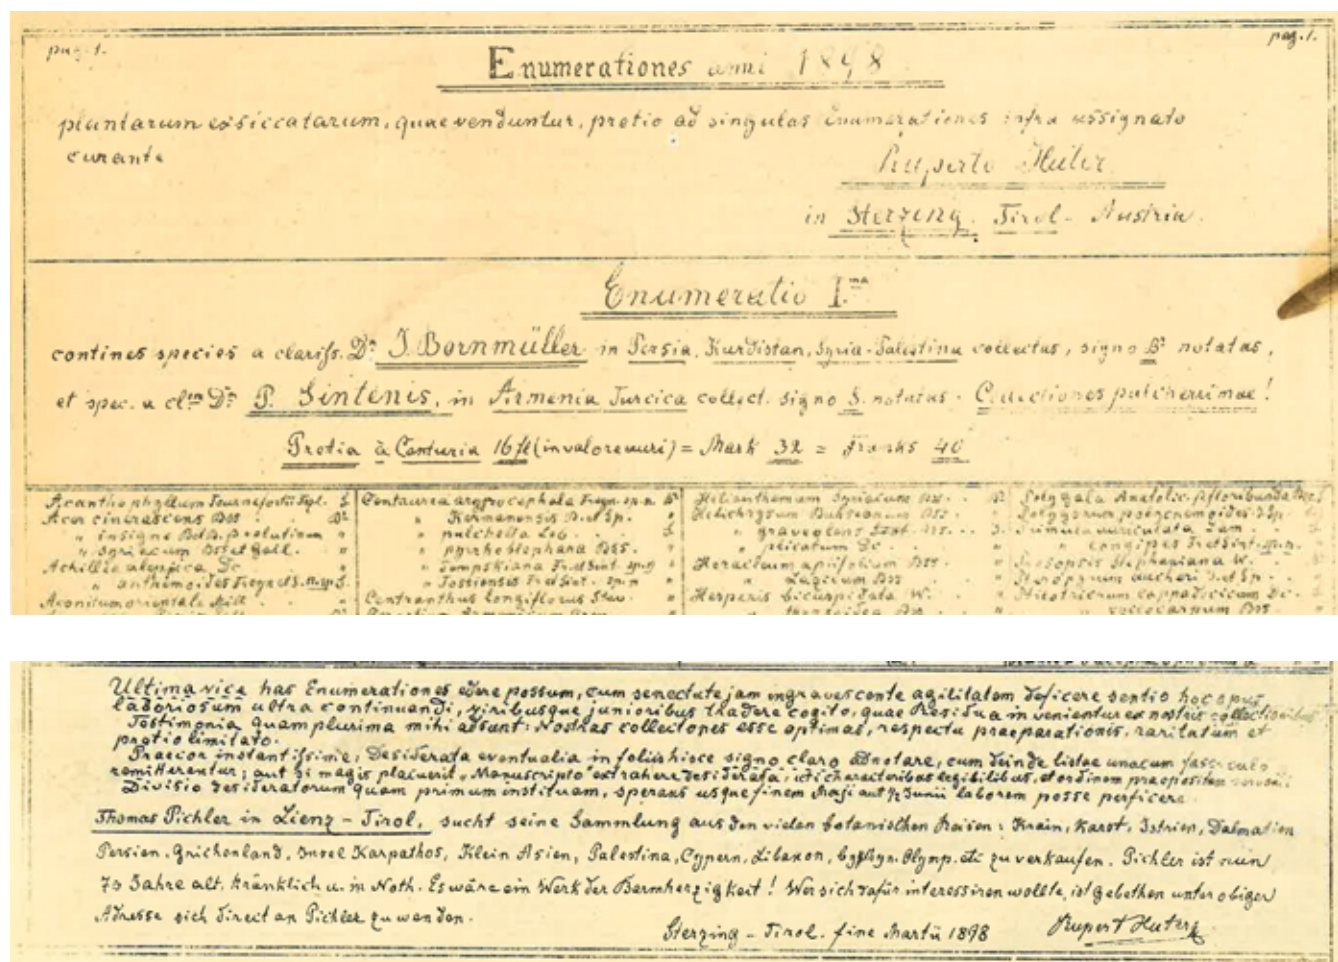 pag. 1.
pag. 1.
Enumerationes anni 1898
plantarum exsiccatarum, quae venduntur, pretio ad singulas Enumerationes infra assignato
curante
Ruperto Huter
in Sterzing. Tirol - Austria.
Enumeratio I.ma
contines species a clariss. Dre J. Bornmüller in Persia, Kurdistan, Syria-Palestina collectas, signo Br notatas,
et spec. a clm Dre P. Sintenis, in Armenia Turcica collect. signo S. notatas. Collectiones pulcherrimae!
Pretia à Centuria 16 fl (in valore) = Mark 32 = Franks 40
Acanthophyllum Tournefortii
Acer cinerascens Bss
" insigne
" syriacum Bss et Gaill.
Achillea aleppica Dc
" anthimoides Freyn et S. n. sp. S.
Aconitum orientale Mill
Centaurea argyrocephala Freyn. sp. n.
" Kermanensis B. et Sp.
" pulchella Led.
" pyrrhoblephara Bss.
" Tempskiana Fr et Sint. sp. n
" Tossiensis Fr et Sint. sp. n
Centranthus longiflorus Stev.
Helianthemum Syriacum
Helichrysum Bss
" graveolens Bss. S.
" plicatum Dc.
Heracleum apiifolium Bss
" Lazicum Bss
Hesperis bicuspidata W.
Polygala Anatolic.
Polygonum polycnemoides J. Sp
Primula auriculata Lam
" longipes Fr et Sint. sp. n.
" Stephaniana W.
aucheri
cappadocicum Dc.
Ultima vice has Enumerationes edere possum, cum senectute jam ingravescente agilitatem deficere sentio hoc opus
laboriosum ultra continuandi, viribusque junioribus tradere cogito, quae Residua invenientur ex nostris collectionibus
Testimonia quam plurima mihi adsunt: Nostras collectones esse optimas, respectu praeparationis, raritatum et
pretio limitato.
Praecor instantissime, Desiderata eventualia in foliis hisce signo claro adnotare, cum deinde listae unacum fasciculo
remitterentur; aut si magis placuerit, Manuscripto extrahere desiderata, characteribus legibilibus, et ordinem praepositem
Divisio desideratorum quam primum instituam, sperans usque finem Maji aut ½ Junii laborem posse perficere.
Thomas Pichler in Lienz - Tirol, sucht seine Sammlung aus den vielen botanischen Reisen: Krain, Karst, Istrien, Dalmatien
Persien, Grichenland, Insel Karpathos, Klein Asien, Palestina, Cypern, Libanon, Olymp. etc zu verkaufen. Pichler ist nun
73 Jahre alt. Kränklich u. in Noth. Es wäre ein Werk der Barmherzigkeit! Wer sich dafür interessiren wollte, ist gebethen unter obiger
Adresse sich direct an Pichler zu wenden.
Sterzing - Tirol. fine Martii 1898 Rupert Huter